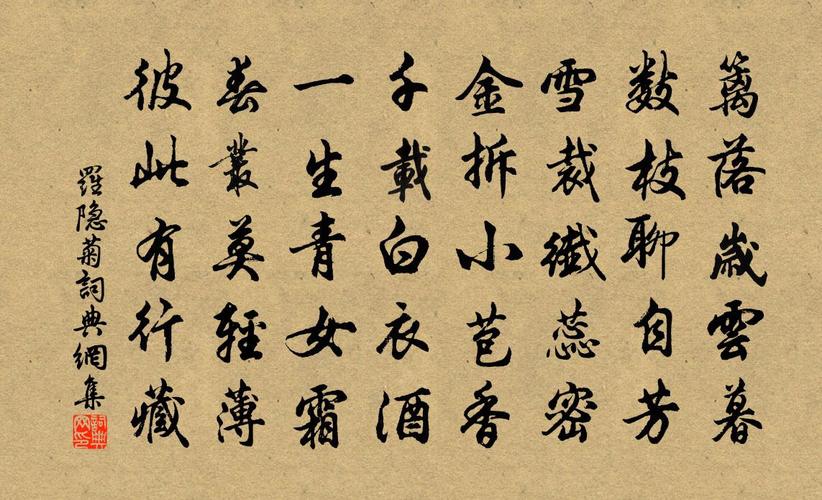 籬落歲雲暮
數枝聊自芳
雪裁纖蕊密
金拆小苞香
千載白衣酒
一生青女霜
春叢莫輕薄
彼此有行藏
羅隐菊詞典網集